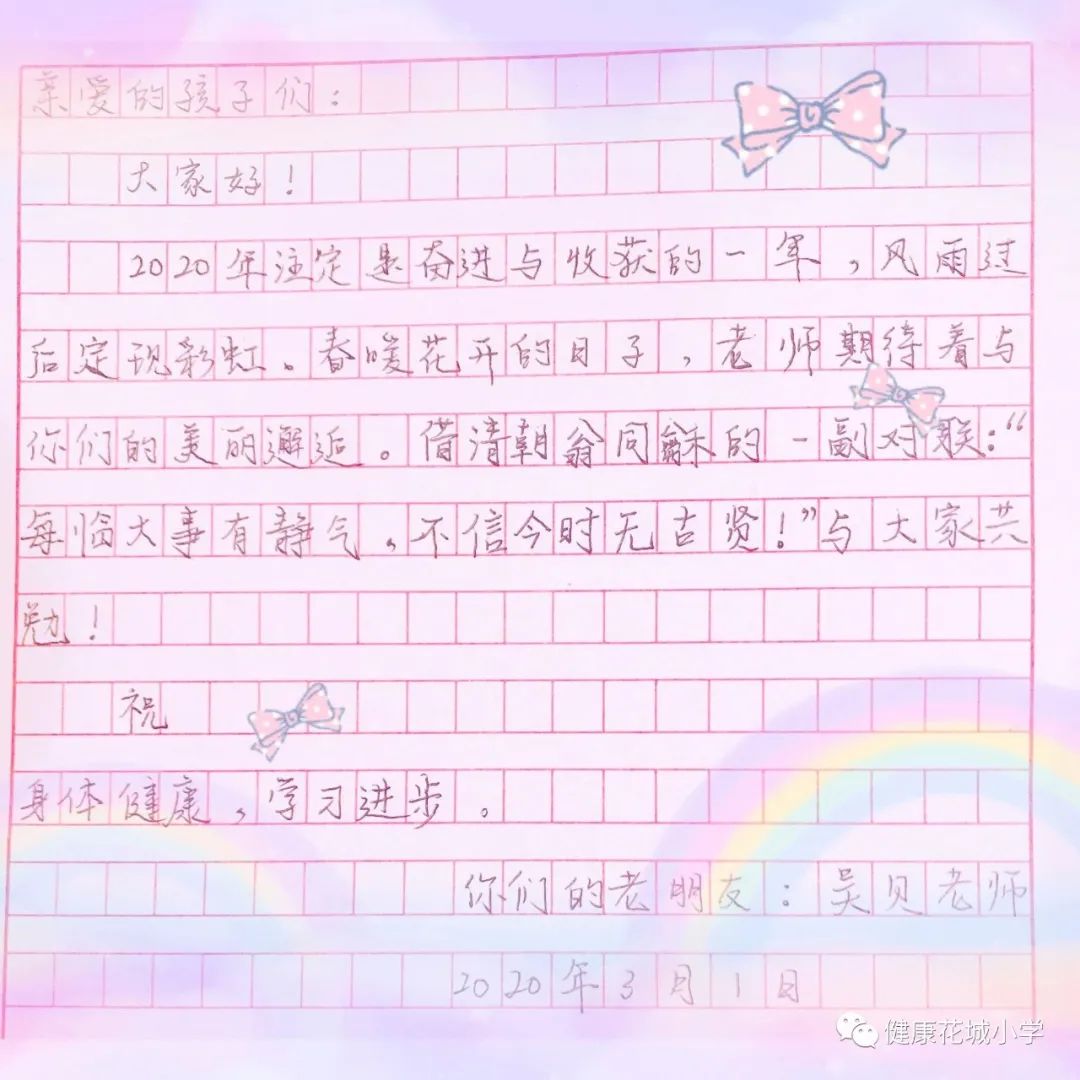 亲爱的孩子们：
大家好！
2020年注定是奋进与收获的一年，风雨过
后定现彩虹。春暖花开的日子，老师期待着与
你们的美丽邂逅。借清朝翁同龢的一副对联：“
每临大事有静气，不信今时无古贤！”与大家共
勉！
祝
身体健康，学习进步。
你们的老朋友：吴贝老师
2020年3月1日
健康花城小学